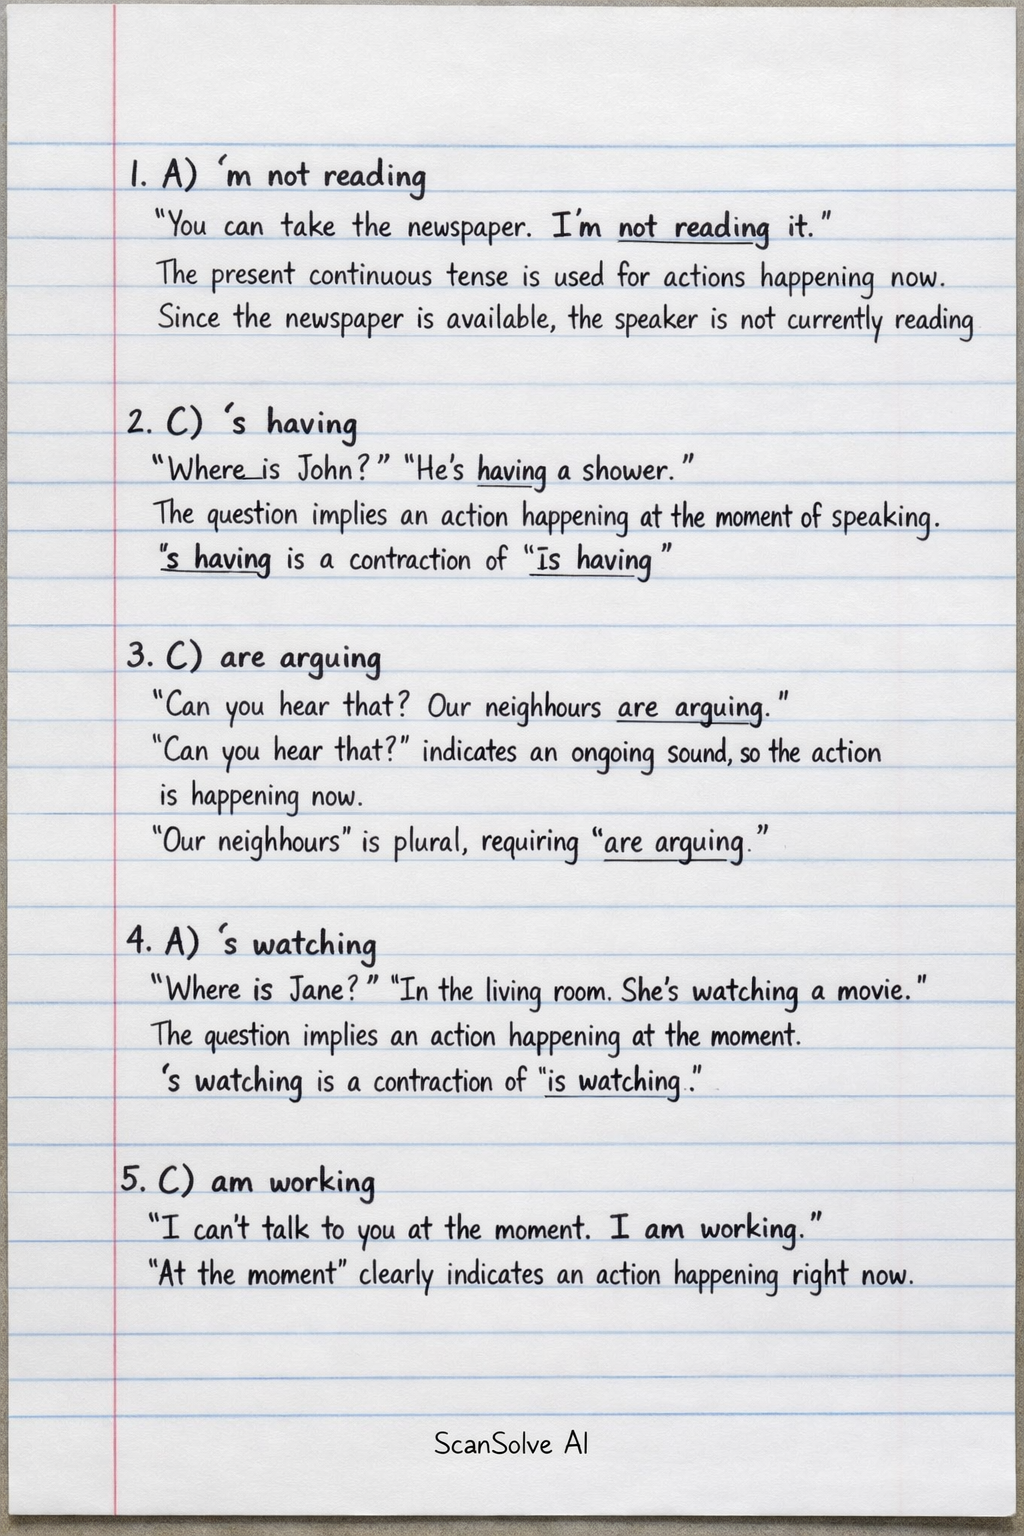 1. A) 'm not reading
"You can take the newspaper. I'm not reading it."
The present continuous tense is used for actions happening now.
Since the newspaper is available, the speaker is not currently reading
2. C) 's having
"Where is John?" "He's having a shower."
The question implies an action happening at the moment of speaking.
"s having is a contraction of "Is having"
3. C) are arguing
"Can you hear that? Our neighhours are arguing."
"Can you hear that?" indicates an ongoing sound, so the action
is happening now.
"Our neighhours" is plural, requiring "are arguing."
4. A) 's watching
"Where is Jane?" "In the living room. She's watching a movie."
The question implies an action happening at the moment.
's watching is a contraction of "is watching."
5. C) am working
"I can't talk to you at the moment. I am working."
"At the moment" clearly indicates an action happening right now.
ScanSolve AI